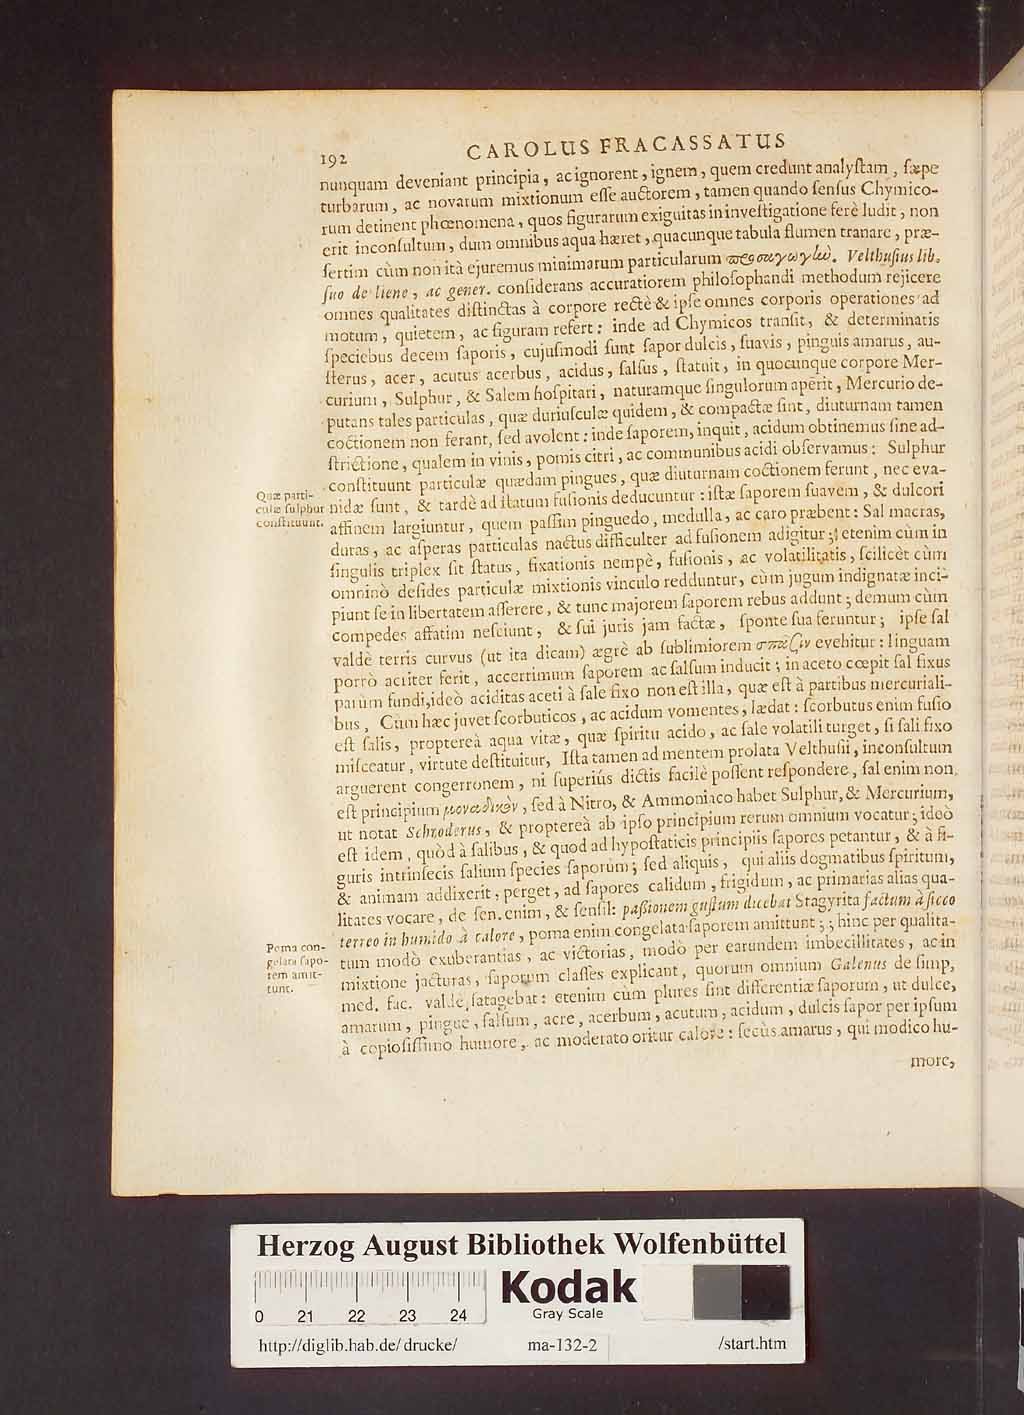 192 CAROLUS FRACASSATUS
nunquam deveniant principia, ac ignorent, ignem, quem credunt analyſtam, ſæpe
turbarum, ac novarum mixtionum eſſe auctorem, tamen quando ſenſus Chymico-
rum detinent phœnomena, quos figurarum exiguitas in inveſtigatione ferè ludit, non
erit inconſultum, dum omnibus aqua hæret, quacunque tabula flumen tranare, præ-
ſertim cùm non ità ejuremus minimarum particularum Velthuſius lib.
ſuo de liene, ac gener. conſiderans accuratiorem philoſophandi methodum rejicere
omnes qualitates diſtinctas à corpore rectè & ipſe omnes corporis operationes ad
motum, quietem, ac figuram refert: inde ad Chymicos tranſit, & determinatis
ſpeciebus decem ſaporis, cujuſmodi ſunt ſapor dulcis, ſuavis, pinguis amarus, au-
ſterus, acer, acutus acerbus, acidus, ſalſus, ſtatuit, in quocunque corpore Mer-
curium, Sulphur, & Salem hoſpitari, naturamque ſingulorum aperit, Mercurio de-
putans tales particulas, quæ duriuſculæ quidem, & compactæ ſint, diuturnam tamen
coctionem non ferant, ſed avolent: inde ſaporem, inquit, acidum obtinemus ſine ad-
ſtrictione, qualem in vinis, pomis citri, ac communibus acidi obſervamus: Sulphur
conſtituunt particulæ quædam pingues, quæ diuturnam coctionem ferunt, nec eva-
Quæ parti-
culæ ſulphur
conſtituunt.
nidæ ſunt, & tardè ad ſtatum fuſionis deducuntur: iſtæ ſaporem ſuavem, & dulcori
affinem largiuntur, quem paſſim pinguedo, medulla, ac caro præbent: Sal macras,
duras, ac aſperas particulas nactus difficulter ad fuſionem adigitur; etenim cùm in
ſingulis triplex ſit ſtatus, fixationis nempè, fuſionis, ac volatilitatis, ſcilicèt cùm
omninò deſides particulæ mixtionis vinculo redduntur, cùm jugum indignatæ inci-
piunt ſe in libertatem aſſerere, & tunc majorem ſaporem rebus addunt; demum cùm
compedes affatim neſciunt, & ſui juris jam factæ, ſponte ſua feruntur; ipſe ſal
valdè terris curvus (ut ita dicam) ægrè ab ſublimiorem evehitur: linguam
porrò acriter ferit, accerrimum ſaporem ac ſalſum inducit; in aceto cœpit ſal fixus
parùm fundi, ideò aciditas aceti à ſale fixo non eſt illa, quæ eſt à partibus mercuriali-
bus, Cùm hæc juvet ſcorbuticos, ac acidum vomentes, lædat: ſcorbutus enim fuſio
eſt ſalis, proptereà aqua vitæ, quæ ſpiritu acido, ac ſale volatili turget, ſi ſali fixo
miſceatur, virtute deſtituitur, Iſta tamen ad mentem prolata Velthuſii, inconſultum
arguerent congerronem, ni ſuperiùs dictis facilè poſſent reſpondere, ſal enim non
eſt principium μοναδικὸν, ſed à Nitro, & Ammoniaco habet Sulphur, & Mercurium,
ut notat Schroderus, & proptereà ab ipſo principium rerum omnium vocatur; ideò
eſt idem, quòd à ſalibus, & quod ad hypoſtaticis principiis ſapores petantur, & à fi-
guris intrinſecis ſalium ſpecies ſaporum; ſed aliquis, qui aliis dogmatibus ſpiritum,
& animam addixerit, perget, ad ſapores calidum, frigidum, ac primarias alias qua-
litates vocare, de ſen. enim, & ſenſil: paſſionem guſtum dicebat Stagyrita factum à ſicco
terreo in humido à calore, poma enim congelata ſaporem amittunt; hinc per qualita-
Poma con-
gelata ſapo-
rem amit-
tunt.
tum modò exuberantias, ac victorias, modò per earundem imbecillitates, ac in
mixtione jacturas, ſaporum claſſes explicant, quorum omnium Galenus de ſimp,
med. fac. valdè ſatagebat: etenim cùm plures ſint differentiæ ſaporum, ut dulce,
amarum, pingue, ſalſum, acre, acerbum, acutum, acidum, dulcis ſapor per ipſum
à copioſiſſimo humore, ac moderato oritur calore: ſecùs amarus, qui modico hu-
more,
Herzog August Bibliothek Wolfenbüttel
Kodak
Gray Scale
0 21 22 23 24
http://diglib.hab.de/drucke/ ma-132-2 /start.htm